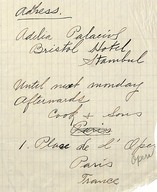 Address.
Adelia Palacios
Bristol Hotel
Stambul
Until next monday
Afterwards
Cook & Sons
Paris
1. Place de l'Opera
Paris
France